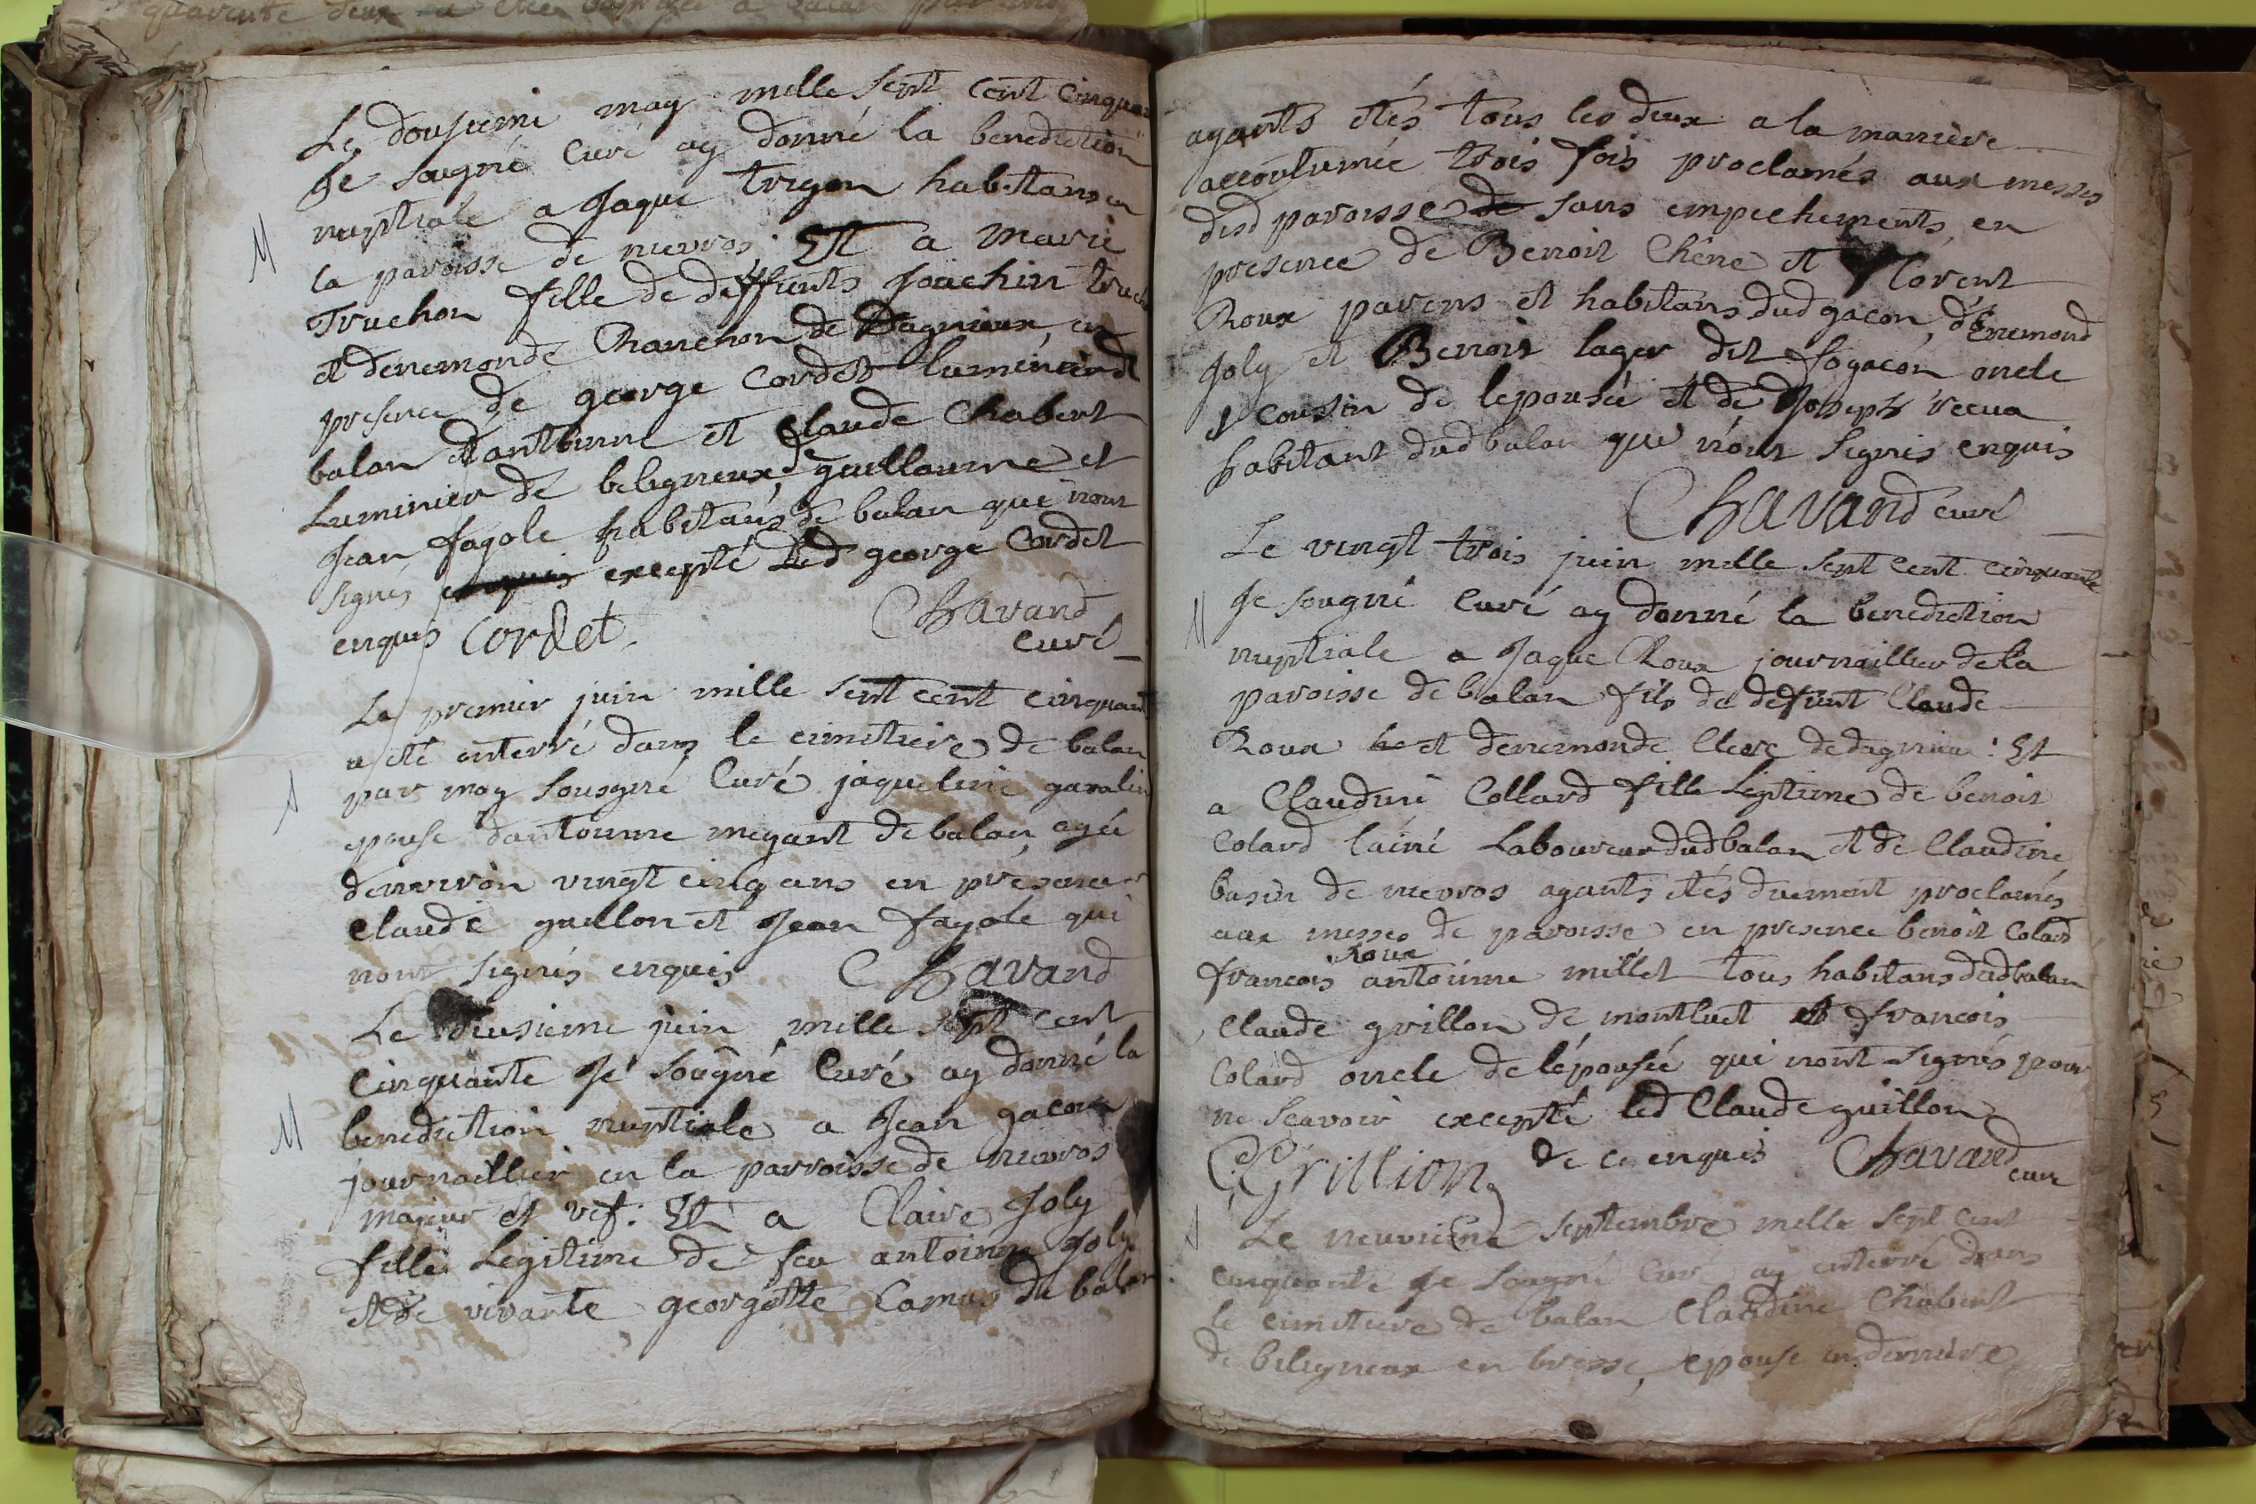 Le dousiemi may mille sept cent cinquan
Je sougné curé ay donné la benediction
M
nuptiale a Jaque trigon habitans en
la paroisse de nievros; Et a marie
Truchon fille de deffunts Joachin truch
et denemonde Ranchon de Dagnieux en
presence de george Cordet luminier de
balan dantoinne et Claude Chabert
Luminier de beligneux, de guillaume et
Jean fayole habitans de balan qui nont
signés excepté Led george Cordet
enquis Cordet Chavand
curé
Le premier juin mille sept cent cinquant
a été enterré dans le cimitiere de balan
par moy sousgné Curé jaqueline gavalin
epouse dantoinne megant de balan, agée
denviron vingt cinq ans en presence
Claude guillon et Jean fayole qui
nont signés enquis Chavand
Le deusieme juin mille sept cent
Cinquante Je sougné Curé ay donné la
M
benediction nuptiale a Jean gacon
journaillier en la parroisse de nievros
majeur et vef: Et a Claire Joly
fille Legitime de feu antoinne Joly
et de vivante georgette Camus de balan
ayants étés tous les deux a la maniere
accoutumée trois fois proclamés aux messes
desd paroisse de sans empechements, en
presence de Benoit Chêne et florent
Roux parens et habitans dud gacon, d'Enemond
Joly et Benoit lager dit fogacon oncle
cousin de lepousée et de Joseph recua
habitant dud balan que n'ont signés enquis
Chavand curé
Le vingt trois juin mille sept cent cinquante
M
Je sougné Curé ay donné la benediction
nuptiale a Jaque Roux journaillier de la
paroisse de balan fils de defunt Claude
Roux et denemonde Clerc de dagnieu: Et
a Claudine Collard fille Legitime de benoit
Colard lainé Laboureur dud balan et de Claudine
basin de nievros ayants étés duement proclamés
aux messes de paroisse en presence benoit Colard
Roux
francois antoinne millet tous habitans dud balan
Claude grillon de montluet et francois
Colard oncle de lépousée qui nont signés pour
ne scavoir excepté led Claude guillon
CGrillion de ce enquis Chavand
cure
Le neuvieme septembre mille sept cent
cinquante Je sougné Curé ay enterré dans
le cimitiere de balan Claudine Chabert
de beligneux en bresse, epouse en derniere